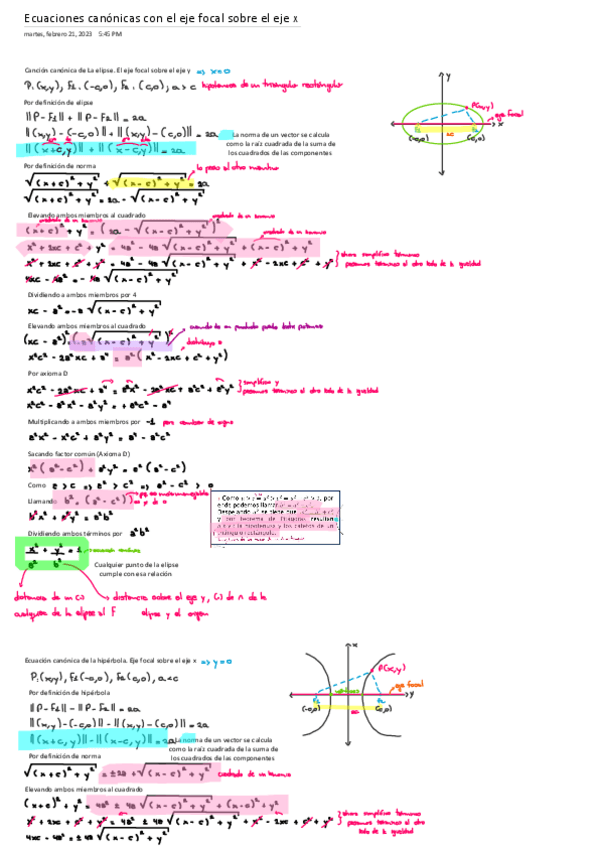 Ecuaciones canónicas con el eje focal sobre el eje x
martes, febrero 21, 2023 5:45 PM
Canción canónica de La elipse. El eje focal sobre el eje y => x=0
P(x,y), F₁(-c,0), F₂(c,0), a>c hipotenusa de un triángulo rectángulo
Por definición de elipse
||P-F₁|| + ||P-F₂|| = 2a
||(x,y)-(-c,0)|| + ||(x,y)-(c,0)|| = 2a
La norma de un vector se calcula
||(x+c,y)|| + ||(x-c,y)|| = 2a
como la raíz cuadrada de la suma de
los cuadrados de las componentes
Por definición de norma
lo paso al otro miembro
√(x+c)²+y² + √(x-c)²+y² = 2a
√(x+c)²+y² = 2a - √(x-c)²+y²
Elevando ambos miembros al cuadrado
cuadrado de un binomio
(x+c)²+y² = (2a - √(x-c)²+y²)²
cuadrado de un binomio
x²+2xc+c²+y² = 4a² - 4a√(x-c)²+y² + (x-c)²+y²
x²+2xc+c²+y² = 4a² - 4a√(x-c)²+y² + x²-2xc+c²+y²
ahora simplifico términos
pasamos términos al otro lado de la igualdad
4xc - 4a² = -4a√(x-c)²+y²
Dividiendo a ambos miembros por 4
xc - a² = -a√(x-c)²+y²
Elevando ambos miembros al cuadrado
cuando es un producto puedo distr potencia
(xc-a²)² = (-a√(x-c)²+y²)²
distribuyo
x²c² - 2a²xc + a⁴ = a²(x²-2xc+c²+y²)
Por axioma D
x²c² - 2a²xc + a⁴ = a²x² - 2a²xc + a²c² + a²y²
simplifico y
pasamos términos al otro lado de la igualdad
x²c² - a²x² - a²y² = +a²c² - a⁴
Multiplicando a ambos miembros por -1 para cambiar de signo
a²x² - x²c² + a²y² = a⁴ - a²c²
Sacando factor común (Axioma D)
x²(a²-c²) + a²y² = a²(a²-c²)
Como a > c => a² > c² => a²-c² > 0
Llamando b² = (a²-c²)
b²x² + a²y² = a²b²
Dividiendo ambos términos por a²b²
x²/a² + y²/b² = 1
Cualquier punto de la elipse
cumple con esa relación
distancia de un (.)
cualquiera de la elipse al F
distancia sobre el eje y, (.) de ∩ de la
elipse y el origen
y
P(x,y)
eje focal
x
F₁
F₂
2c
(-c,0)
(c,0)
Ecuación canónica de la hipérbola. Eje focal sobre el eje x => y=0
P(x,y), F₁(-c,0), F₂(c,0), a<c
Por definición de hipérbola
||P-F₁|| - ||P-F₂|| = 2a
||(x,y)-(-c,0)|| - ||(x,y)-(c,0)|| = 2a
||(x+c,y)|| - ||(x-c,y)|| = 2a
La norma de un vector se calcula
como la raíz cuadrada de la suma de
Por definición de norma
los cuadrados de las componentes
√(x+c)²+y² = ±2a + √(x-c)²+y² cuadrado de un binomio
Elevando ambos miembros al cuadrado
(x+c)²+y² = 4a² ± 4a√(x-c)²+y² + (x-c)²+y²
x²+2xc+c²+y² = 4a² ± 4a√(x-c)²+y² + x²-2xc+c²+y²
ahora simplifico términos
pasamos términos al otro
lado de la igualdad
4xc - 4a² = ±4a√(x-c)²+y²
x
P(x,y)
eje focal
y
F₁
F₂
(-c,0)
(c,0)
2c